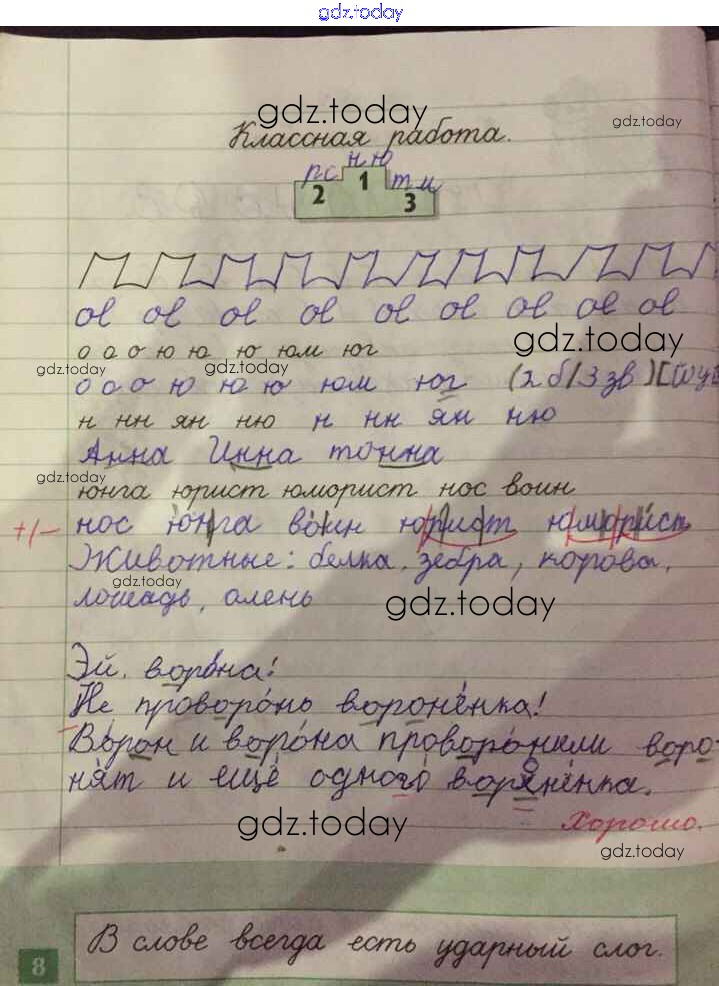 gdz.today
gdz.today
gdz.today
Классная работа.
н ю
р с
т м
2 1 3
ol ol ol ol ol ol ol ol ol
gdz.today
о о о ю ю ю юм юг
gdz.today
gdz.today
о о о ю ю ю юм юг (2 б/3 зв)
н нн ян ню н нн ян ню
Анна Инна тонна
gdz.today
юнга юрист юморист нос воин
+/- нос юнга воин юрист юморист
Животные: белка, зебра, корова,
gdz.today
лошадь, олень
gdz.today
Эй, ворона!
Не проворонь воронёнка!
Ворон и ворона проворонили воро-
нят и ещё одного воронёнка.
gdz.today
Хорошо.
gdz.today
В слове всегда есть ударный слог.
8